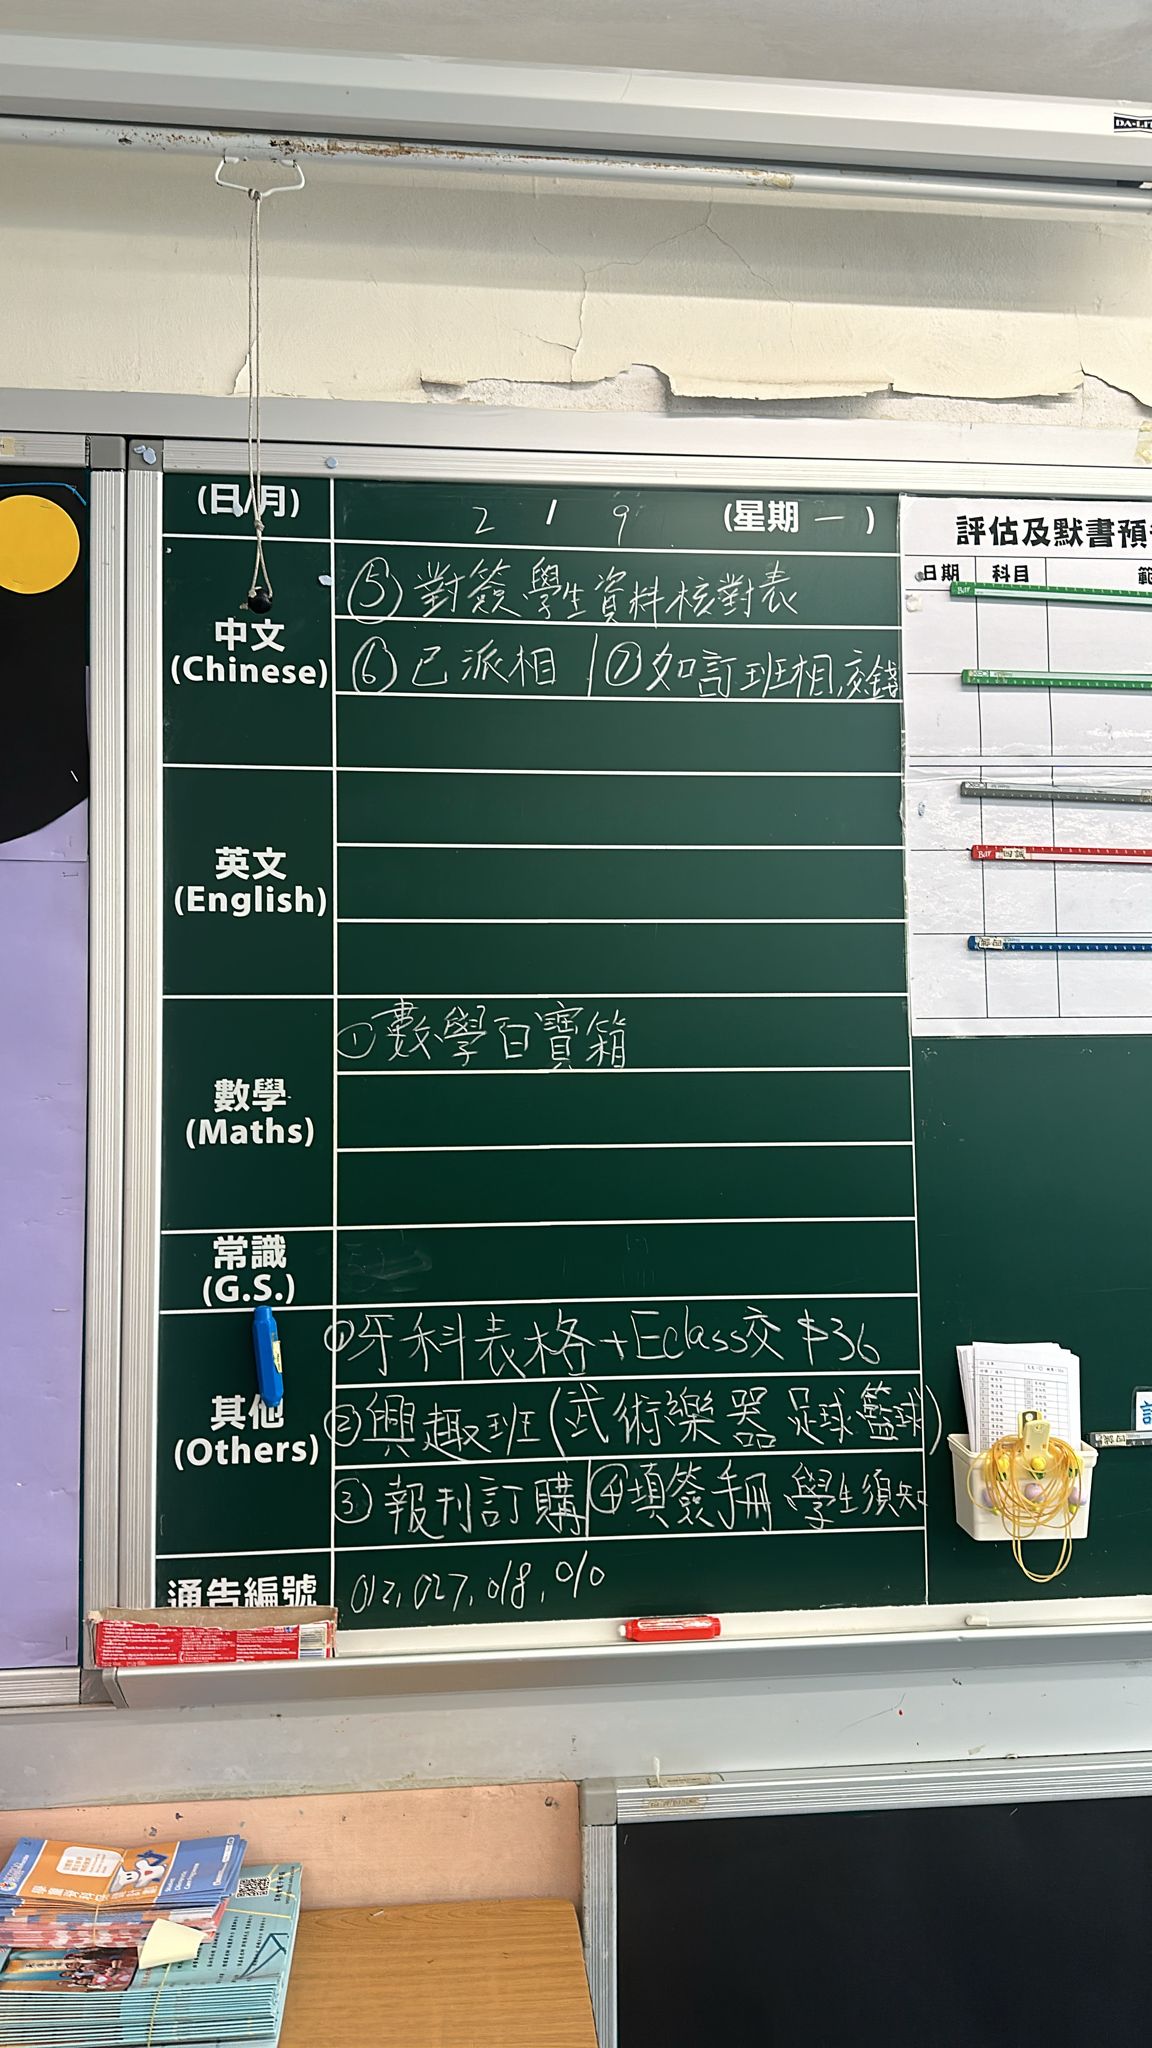 (日/月) 2 / 9 (星期一)
中文
(Chinese)
⑤ 對簽學生資料核對表
⑥ 已派相 / ⑦ 如訂班相,交錢
英文
(English)
數學
(Maths)
① 數學百寶箱
常識
(G.S.)
其他
(Others)
① 牙科表格+Eclass交 $36
② 興趣班(武術樂器 足球籃球)
③ 報刊訂購 / ④ 填簽手冊 學生須知
通告編號 012, 027, 018, 010
評估及默書預
日期 科目 範